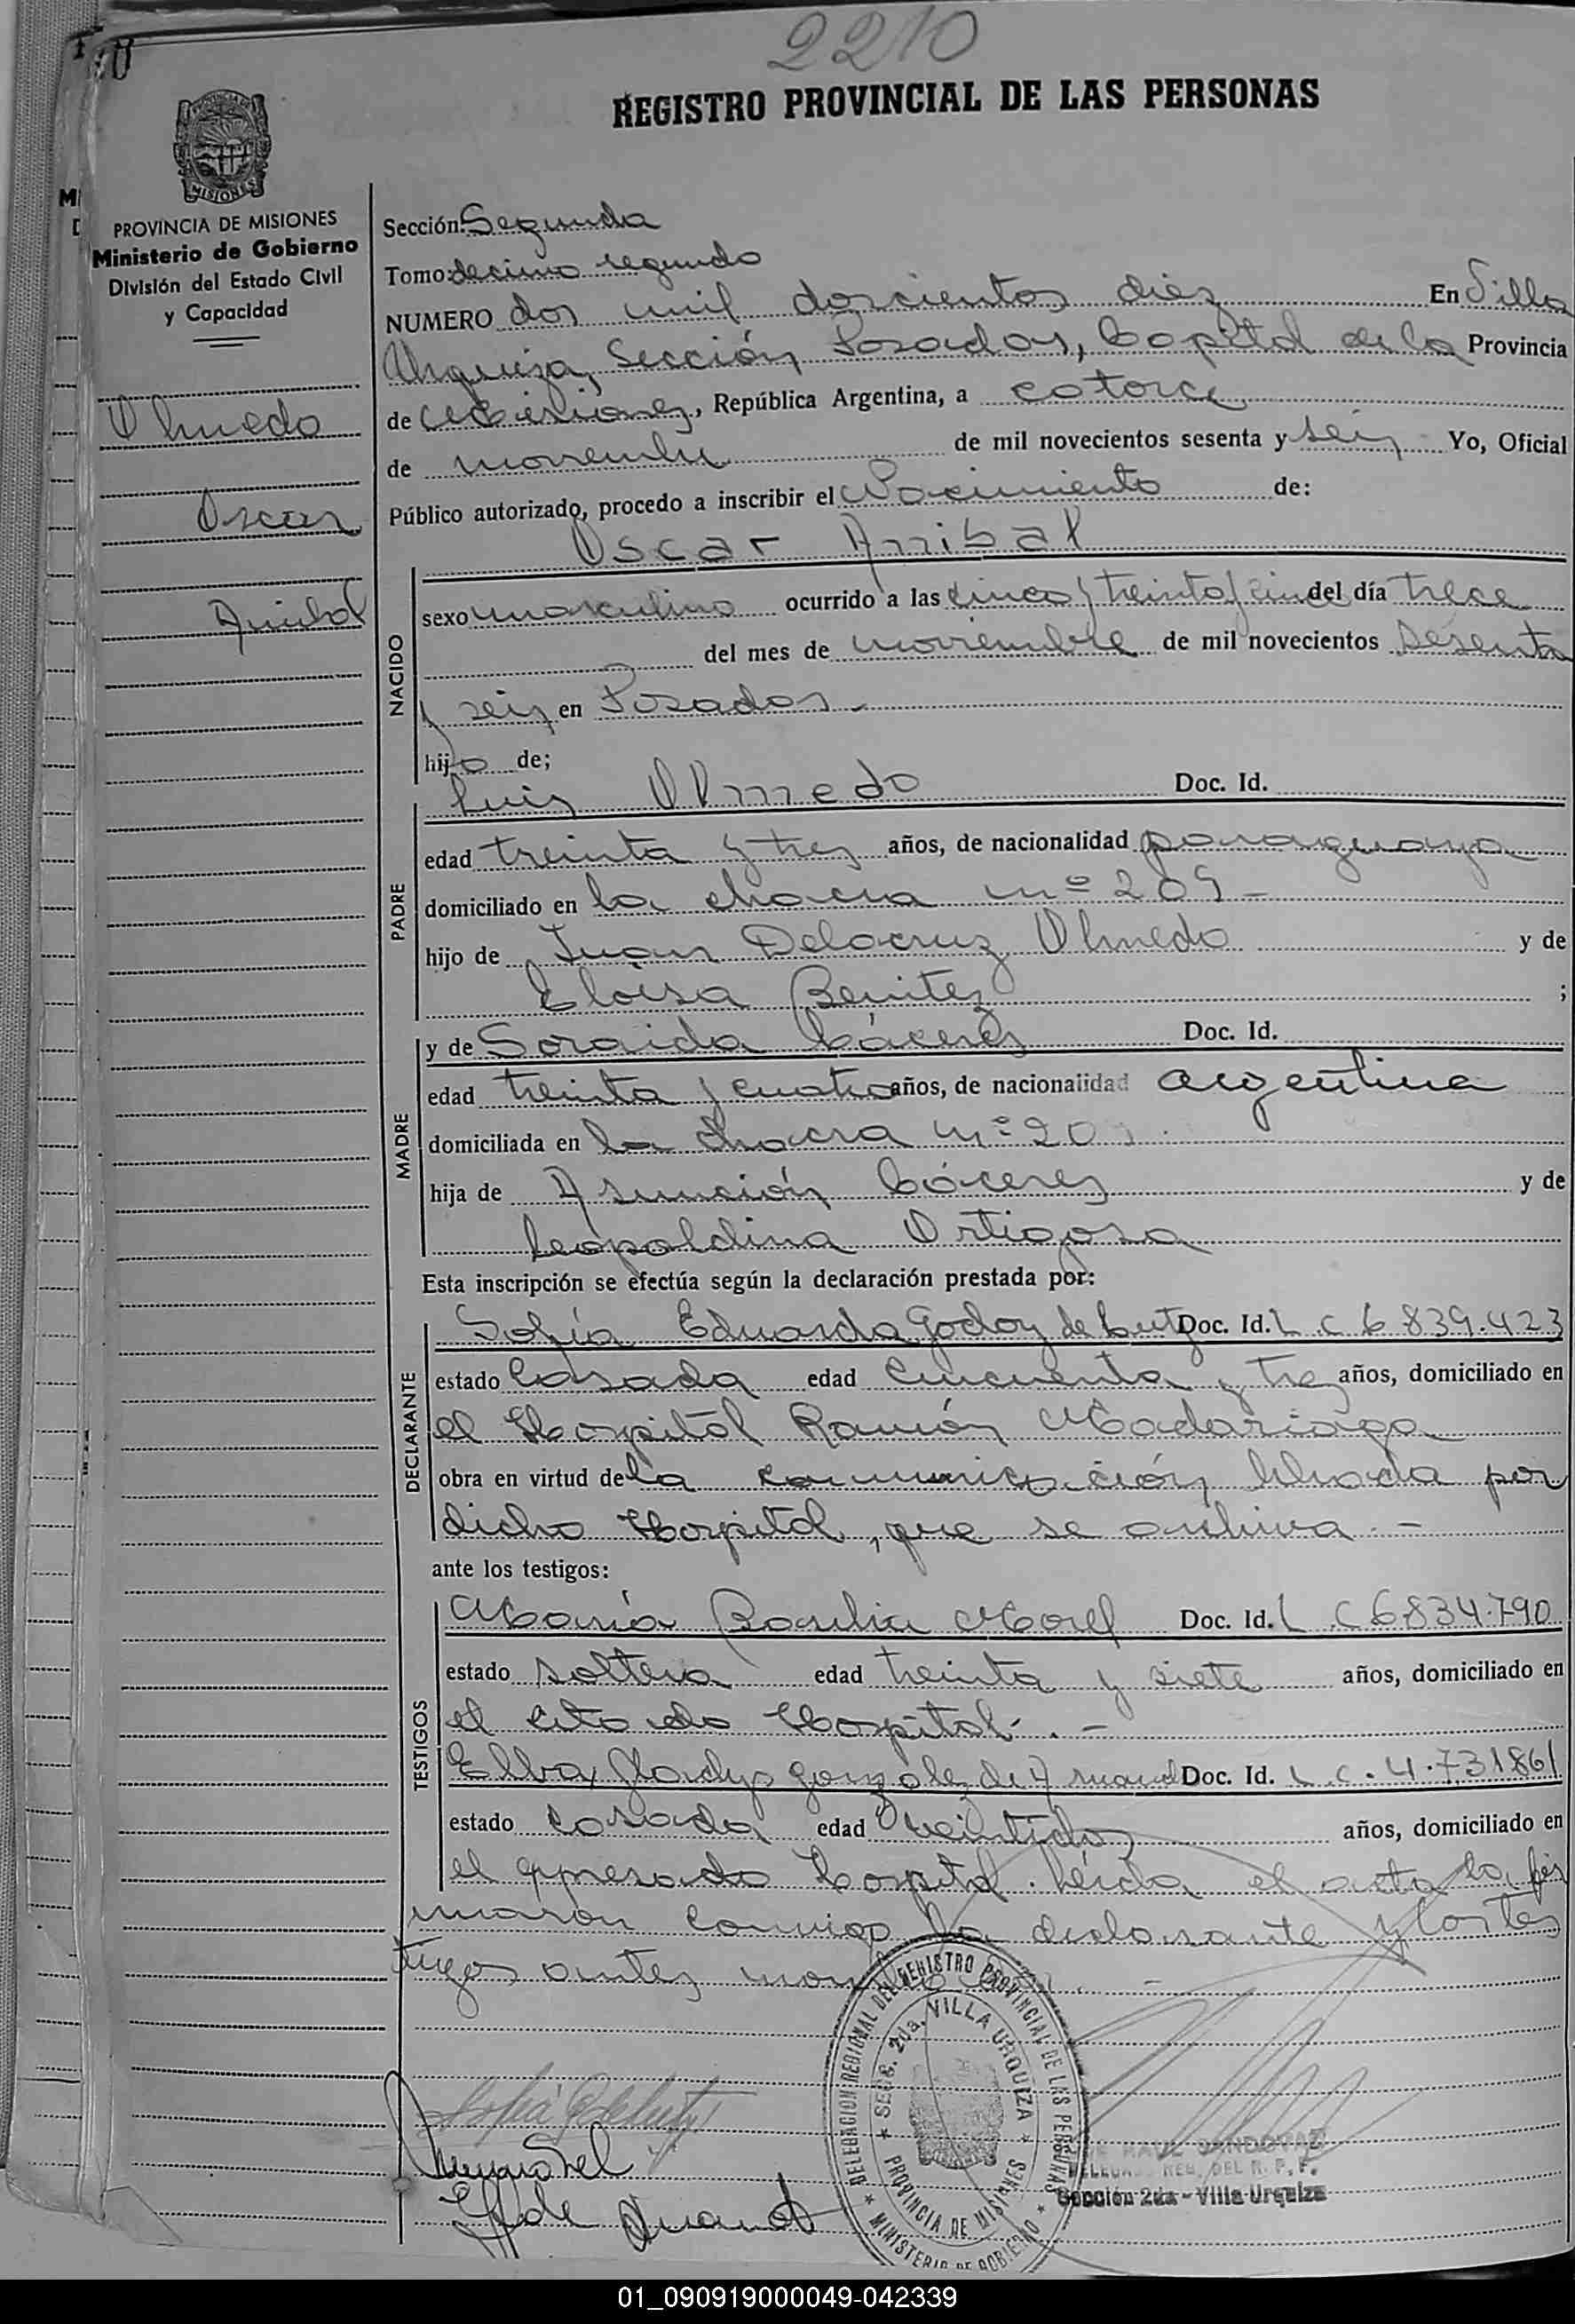 2210
REGISTRO PROVINCIAL DE LAS PERSONAS
MISIONES
PROVINCIA DE MISIONES
Ministerio de Gobierno
División del Estado Civil
y Capacidad
Olmedo
Oscar
Anibal
Sección: Segunda
Tomo: decimo segundo
NUMERO dos mil doscientos diez En Villa
Urquiza, Sección Posadas, Capital de la Provincia
de Misiones, República Argentina, a catorce
de noviembre de mil novecientos sesenta y seis Yo, Oficial
Público autorizado, procedo a inscribir el Nacimiento de:
Oscar Anibal
NACIDO
sexo masculino ocurrido a las cinco y treinta y cinco del día trece
del mes de noviembre de mil novecientos sesenta
y seis en Posadas.-
hijo de;
PADRE
Luis Olmedo Doc. Id.
edad treinta y tres años, de nacionalidad paraguaya
domiciliado en la chacra nº 209 -
hijo de Juan Delacruz Olmedo y de
Eloisa Benitez ;
MADRE
y de Soraida Cáceres Doc. Id.
edad treinta y cuatro años, de nacionalidad argentina
domiciliada en la chacra nº 209.
hija de Asunción Cáceres y de
Leopoldina Ortigosa
Esta inscripción se efectúa según la declaración prestada por:
DECLARANTE
Sofía Eduarda Godoy de Lutz Doc. Id. L C 6 839.423
estado Casada edad cincuenta y tres años, domiciliado en
el Hospital Ramón Madariaga
obra en virtud de la comunicación librada por
dicho Hospital, que se archiva.-
ante los testigos:
TESTIGOS
María Basilia Morel Doc. Id. L C 6834.790
estado soltera edad treinta y siete años, domiciliado en
el citado Hospital.-
Elba Gladys González de Doc. Id. L.C. 4.731861
estado casada edad veintidos años, domiciliado en
el expresado Hospital. Leída el acta la fir
maron conmigo la declarante y los tes
tigos antes
DELEGACION REGIONAL DEL REGISTRO PROVINCIAL DE LAS PERSONAS
SECC. 2da. VILLA URQUIZA
PROVINCIA DE MISIONES
MINISTERIO DE GOBIERNO
RAUL SANDOVAL
Sección 2da - Villa Urquiza
01_090919000049-042339